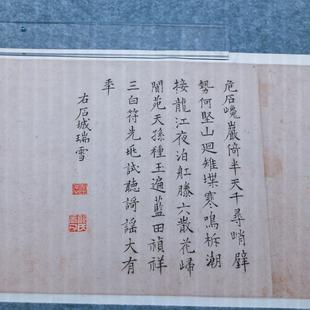 危石巉巖倚半天千尋峭壁
勢何堅山迴雉堞寒鳴柝潮
接龍江夜泊舡滕六散花歸
閬苑天孫種玉遍藍田禎祥
三白符先兆試聽謌謠大有
年
右石城瑞雪